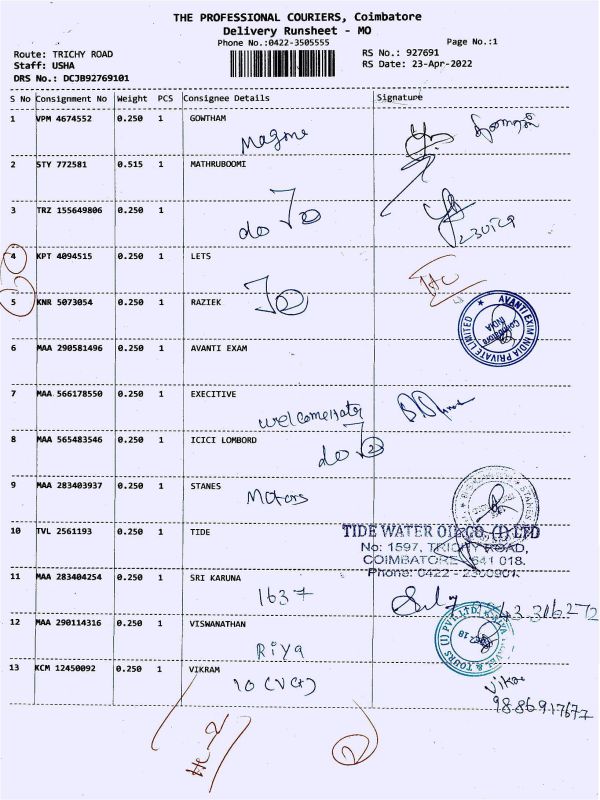 THE PROFESSIONAL COURIERS, Coimbatore
Delivery Runsheet - MO
Phone No.:0422-3505555
Page No.:1
Route: TRICHY ROAD
RS No.: 927691
Staff: USHA
RS Date: 23-Apr-2022
DRS No.: DCJB92769101
S No Consignment No Weight PCS Consignee Details Signature
1 VPM 4674552 0.250 1 GOWTHAM
2 STY 772581 0.515 1 MATHRUBOOMI
3 TRZ 155649806 0.250 1
do
4 KPT 4094515 0.250 1 LETS
5 KNR 5073054 0.250 1 RAZIEK
AVANTI EXIM INDIA PRIVATE LIMITED
Coimbatore
INDIA
6 MAA 290581496 0.250 1 AVANTI EXAM
7 MAA 566178550 0.250 1 EXECITIVE
8 MAA 565483546 0.250 1 ICICI LOMBORD
do
9 MAA 283403937 0.250 1 STANES
Motors
STANES
10 TVL 2561193 0.250 1 TIDE
TIDE WATER OIL CO. (I) LTD
No: 1597, TRICHY ROAD,
COIMBATORE - 641 018.
Phone: 0422 -
11 MAA 283404254 0.250 1 SRI KARUNA
1637
12 MAA 290114316 0.250 1 VISWANATHAN
Riya
& TOURS (I) PVT. LTD.
13 KCM 12450092 0.250 1 VIKRAM
10 (VCt)
HC-2
2